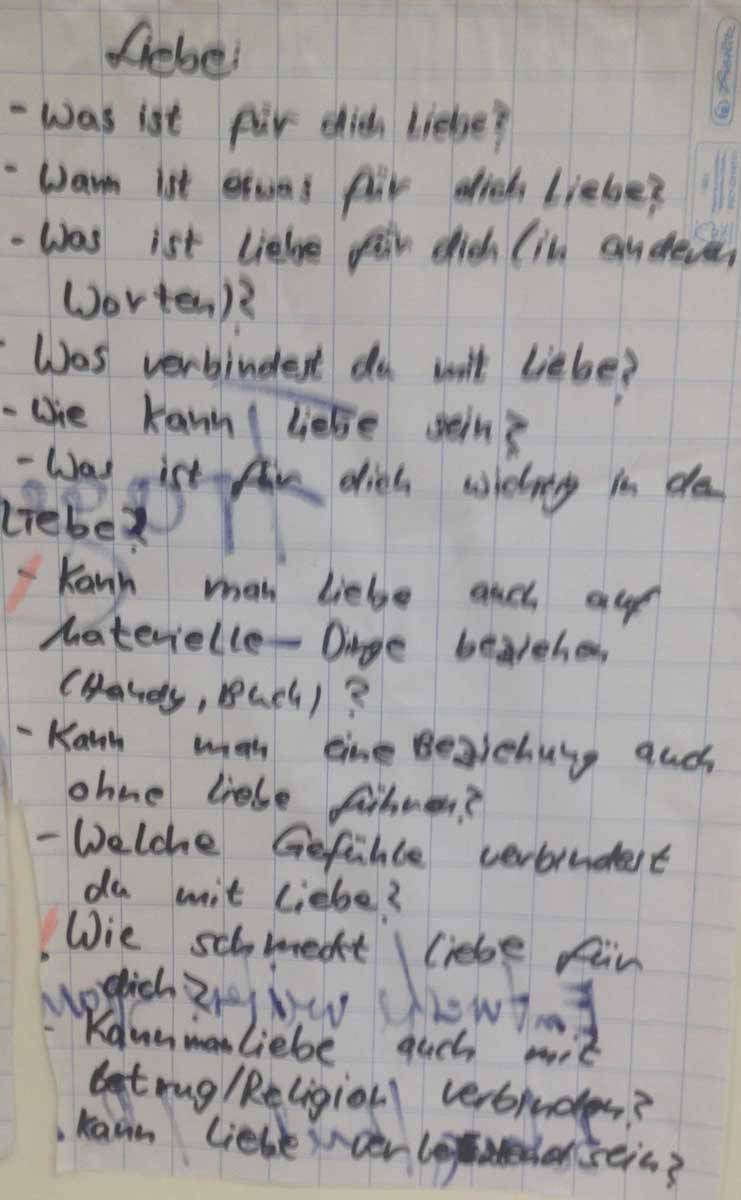 Liebe:
- Was ist für dich Liebe?
- Wann ist etwas für dich Liebe?
- Was ist Liebe für dich (in anderen
Worten)?
- Was verbindest du mit Liebe?
- Wie kann Liebe sein?
- Was ist für dich wichtig in der
Liebe?
- Kann man Liebe auch auf
Materielle-Dinge beziehen
(Handy, Buch)?
- Kann man eine Beziehung auch
ohne Liebe führen?
- Welche Gefühle verbindest
du mit Liebe?
. Wie schmeckt Liebe für
dich?
- Kann man Liebe auch mit
betrug/Religion verbinden?
. Kann Liebe verletzend sein?